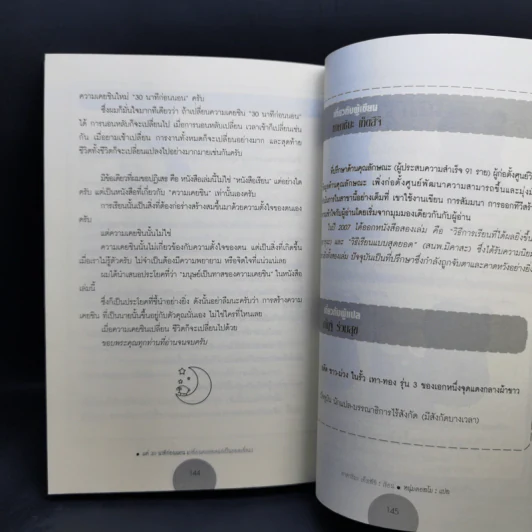 ความเคยชินใหม่ "30 นาทีก่อนนอน" ครับ
ซึ่งผมก็มั่นใจมากทีเดียวว่า ถ้าเปลี่ยนความเคยชิน "30 นาทีก่อนนอน"
ได้ การนอนหลับก็จะเปลี่ยนไป เมื่อการนอนหลับเปลี่ยน เวลาเช้าก็เปลี่ยนเช่น
กัน เมื่อยามเช้าเปลี่ยน การงานทั้งหมดก็จะเปลี่ยนอย่างมาก และสุดท้าย
ชีวิตทั้งชีวิตก็จะเปลี่ยนแปลงไปอย่างมากมายเช่นกันครับ
มีข้อเดียวที่ผมขอปฏิเสธ คือ หนังสือเล่มนี้ไม่ใช่ "หนังสือเรียน" แต่อย่างใด
ครับ แต่เป็นหนังสือที่เกี่ยวกับ "ความเคยชิน" เท่านั้นเองครับ
การเรียนนั้นเป็นสิ่งที่ต้องก่อร่างสร้างสมขึ้นมาด้วยความตั้งใจของตนเอง
ครับ
แต่ความเคยชินนั้นไม่ใช่
ความเคยชินนั้นไม่เกี่ยวข้องกับความตั้งใจของคน แต่เป็นสิ่งที่เกิดขึ้น
เมื่อเราไม่รู้ตัวครับ ไม่จำเป็นต้องมีความพยายาม หรือจิตใจที่แน่วแน่เลย
ผมได้นำเสนอประโยคที่ว่า "มนุษย์เป็นทาสของความเคยชิน" ในหนังสือ
เล่มนี้
ซึ่งก็เป็นประโยคที่ชี้นำอย่างยิ่ง ดังนั้นอย่าลืมนะครับว่า การสร้างความ
เคยชิน ที่เป็นนายนั้นขึ้นอยู่กับตัวคุณนั่นเอง ไม่ใช่ใครที่ไหนเลย
เมื่อความเคยชินเปลี่ยน ชีวิตก็จะเปลี่ยนไปด้วย
ขอบพระคุณทุกท่านที่อ่านจนจบครับ
144
เกี่ยวกับผู้เขียน
ที่ปรึกษาด้านคุณลักษณะ (ผู้ประสบความสำเร็จ 91 ราย) ผู้ก่อตั้งศูนย์วิ
ด้านคุณลักษณะ เพิ่งก่อตั้งศูนย์พัฒนาความสามารถขึ้นและมุ่งมั่
การในสาขานี้อย่างเต็มที่ เขาใช้งานเขียน การสัมมนา การออกทีวีสร้
ให้กับผู้อ่านโดยเริ่มจากมุมมองเดียวกันกับผู้อ่าน
ในปี 2007 ได้ออกหนังสือสองเล่ม คือ "วิธีการเรียนที่ได้ผลยิ่งขึ้
และ "วิธีเรียนแบบสุดยอด" (สนพ.มิคาสะ) ซึ่งได้รับความนิย
ทั้งสองเล่ม ปัจจุบันเป็นที่ปรึกษาซึ่งกำลังถูกจับตาและคาดหวังอย่างยิ่ง
เกี่ยวกับผู้แปล
ขาว-ม่วง ในรั้ว เทา-ทอง รุ่น 3 ของเอกหนึ่งชุดแดงกลางผ้าขาว
ปัจจุบัน นักแปล-บรรณาธิการไร้สังกัด (มีสังกัดบางเวลา)
145